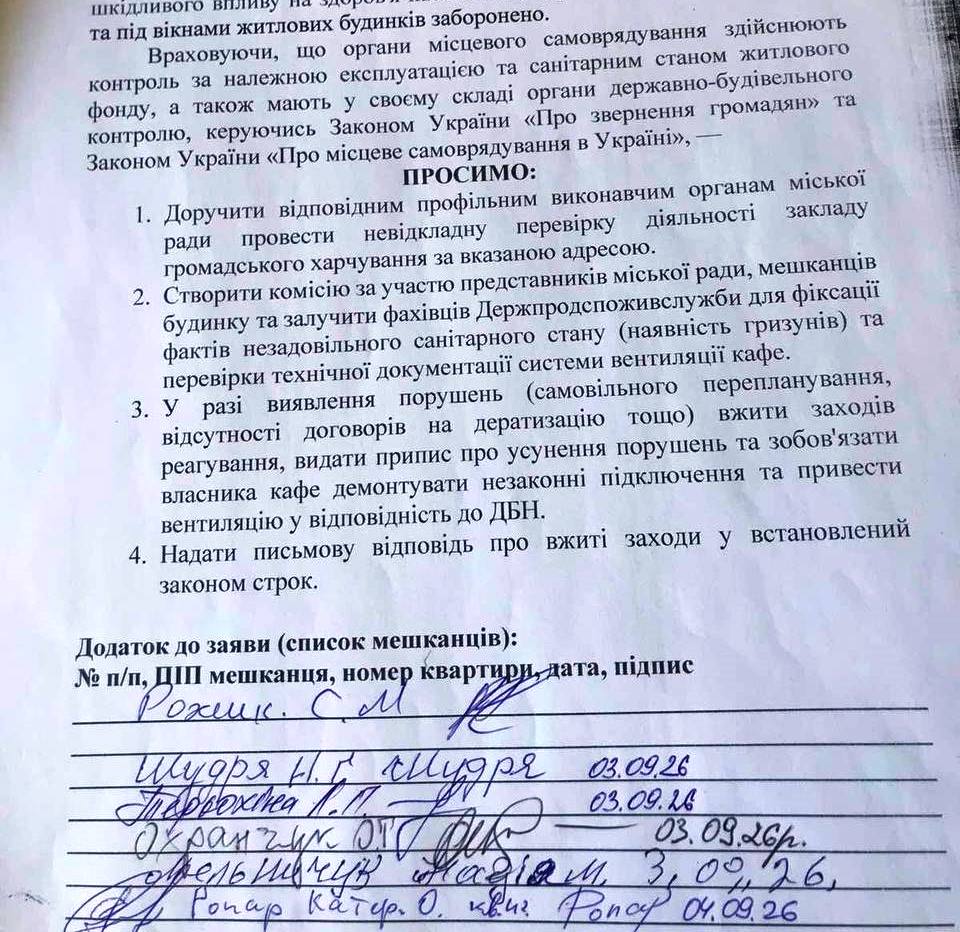 шкідливого впливу на здоров'я
та під вікнами житлових будинків заборонено.
Враховуючи, що органи місцевого самоврядування здійснюють
контроль за належною експлуатацією та санітарним станом житлового
фонду, а також мають у своєму складі органи державно-будівельного
контролю, керуючись Законом України «Про звернення громадян» та
Законом України «Про місцеве самоврядування в Україні», —
ПРОСИМО:
1. Доручити відповідним профільним виконавчим органам міської
ради провести невідкладну перевірку діяльності закладу
громадського харчування за вказаною адресою.
2. Створити комісію за участю представників міської ради, мешканців
будинку та залучити фахівців Держпродспоживслужби для фіксації
фактів незадовільного санітарного стану (наявність гризунів) та
перевірки технічної документації системи вентиляції кафе.
3. У разі виявлення порушень (самовільного перепланування,
відсутності договорів на дератизацію тощо) вжити заходів
реагування, видати припис про усунення порушень та зобов'язати
власника кафе демонтувати незаконні підключення та привести
вентиляцію у відповідність до ДБН.
4. Надати письмову відповідь про вжиті заходи у встановлений
законом строк.
Додаток до заяви (список мешканців):
№ п/п, ПІП мешканця, номер квартири, дата, підпис
С. М
Шудря Н. Г. Шудря 03.09.26
Л. П. 03.09.26
Охранчук О Т — 03.09.26р.
Мельничук Надія М. 3, 09, 26,
Ропар Катер. О. Ропар 04.09.26